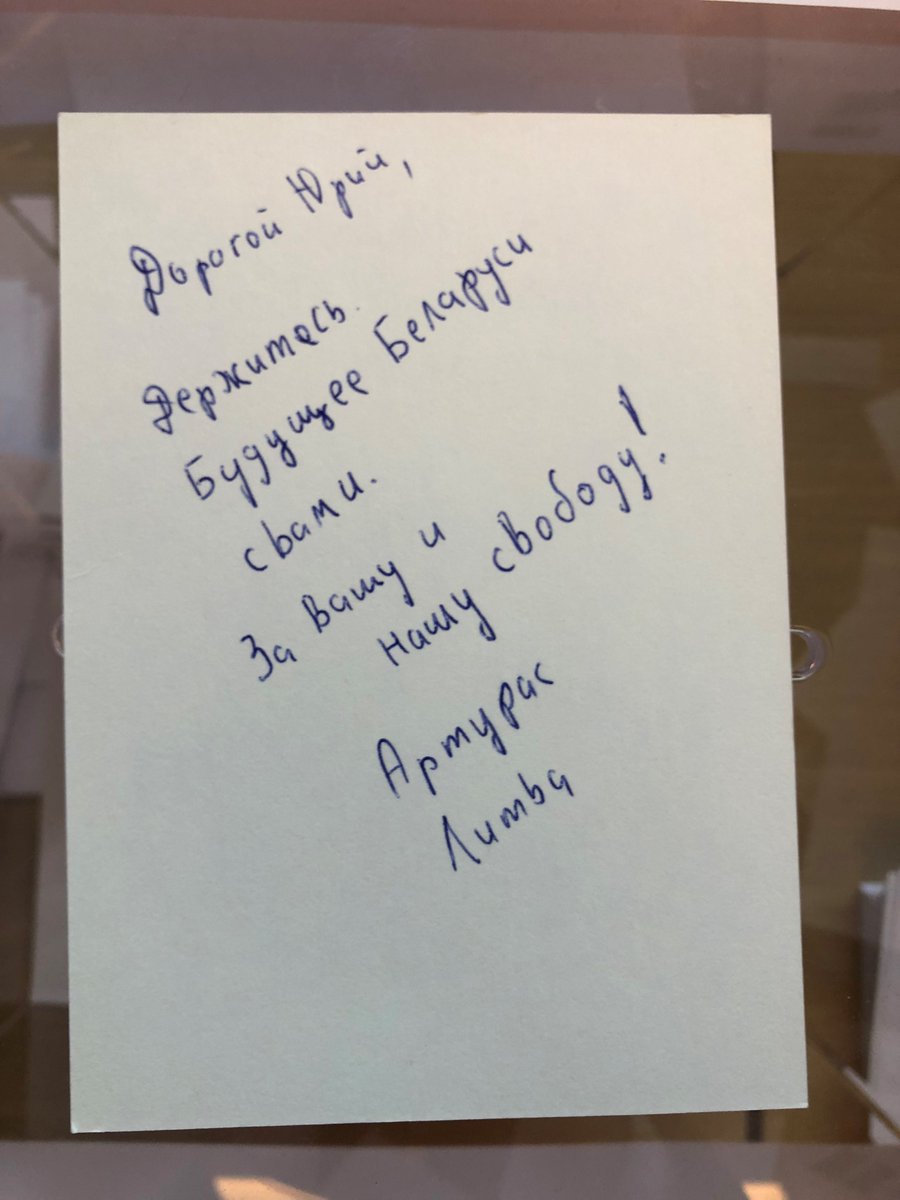 Дорогой Юрий,
Держитесь.
Будущее Беларуси
свами.
За вашу и
нашу свободу!
Артурас
Литва